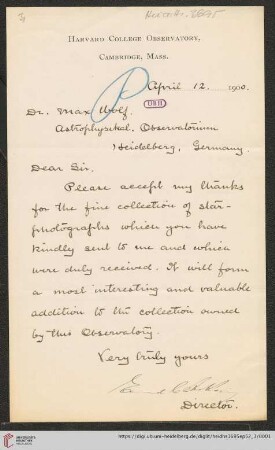 Heid.Hs. 3695
HARVARD COLLEGE OBSERVATORY,
CAMBRIDGE, MASS.
April 12. 1900.
Dr. Max Wolf.
UBH
Astrophysikal. Observatorium
Heidelberg, Germany.
Dear Sir.
Please accept my thanks
for the fine collection of star-
photographs which you have
kindly sent to me and which
were duly received. It will form
a most interesting and valuable
addition to the collection owned
by this Observatory.
Very truly yours
Director.